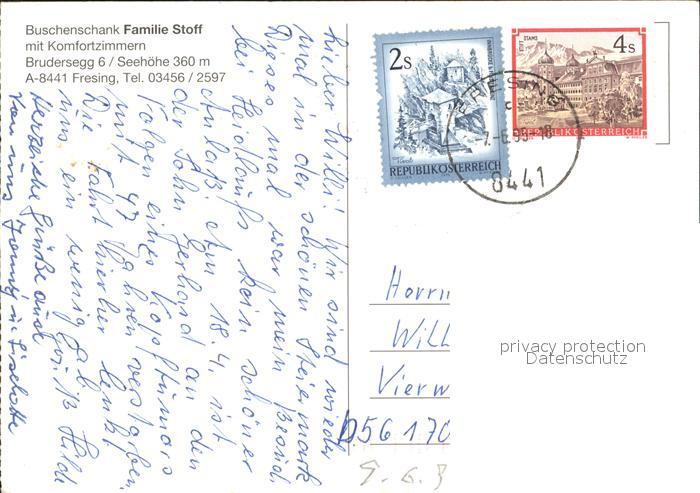 Buschenschank Familie Stoff
mit Komfortzimmern
Brudersegg 6 / Seehöhe 360 m
A-8441 Fresing, Tel. 03456 / 2597
Lieber Willi! Wir sind wieder
mal in der schönen Steiermark
Dieses mal war mein Besuch
bei Heidlaufs kein schöner
Anlaß. Am 18.4. ist
der Sohn Gerhard an den
Folgen eines Kopftumors
mit 47 Jahren verstorben
Die Fahrt hierher lenkt
uns ein wenig ab.
Herzliche Grüße auch
von uns
2s
REPUBLIK ÖSTERREICH
STIFT STAMS
4s
REPUBLIK ÖSTERREICH
FRESING
8441
Herrn
Will
Vierw
D56170
privacy protection
Datenschutz